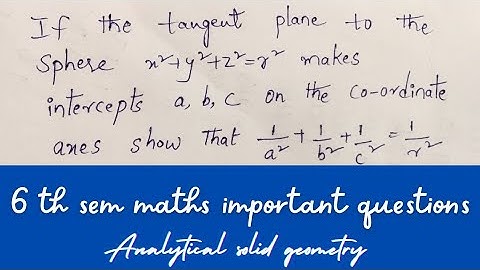 If the tangent plane to the
Sphere x²+y²+z²=r² makes
intercepts a, b, c on the co-ordinate
axes show that 1/a² + 1/b² + 1/c² = 1/r²
6 th sem maths important questions
Analytical solid geometry